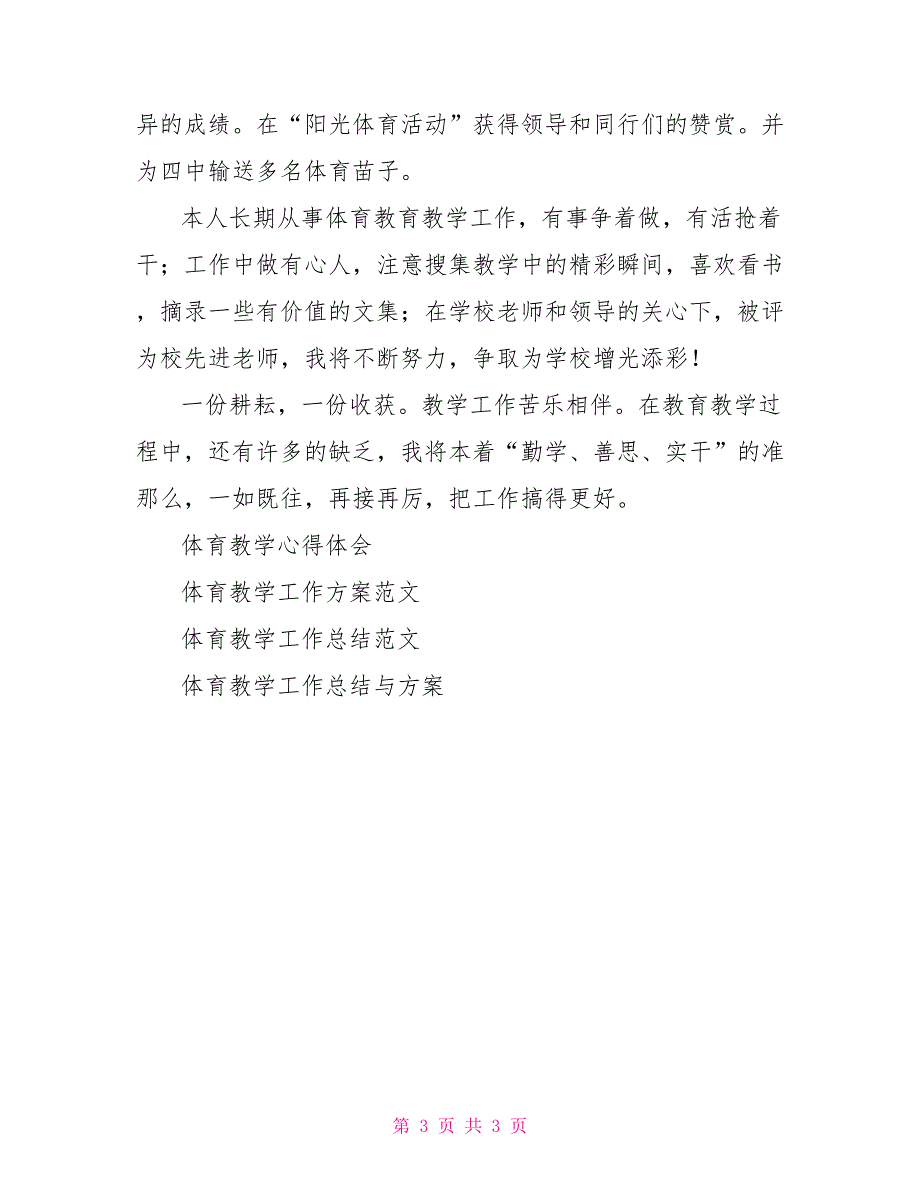 异的成绩。在“阳光体育活动”获得领导和同行们的赞赏。并
为四中输送多名体育苗子。
本人长期从事体育教育教学工作，有事争着做，有活抢着
干；工作中做有心人，注意搜集教学中的精彩瞬间，喜欢看书
，摘录一些有价值的文集；在学校老师和领导的关心下，被评
为校先进老师，我将不断努力，争取为学校增光添彩！
一份耕耘，一份收获。教学工作苦乐相伴。在教育教学过
程中，还有许多的缺乏，我将本着“勤学、善思、实干”的准
那么，一如既往，再接再厉，把工作搞得更好。
体育教学心得体会
体育教学工作方案范文
体育教学工作总结范文
体育教学工作总结与方案
第 3 页 共 3 页